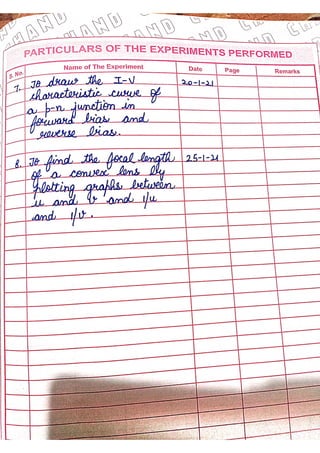 CHAND CHAND CHAND
PARTICULARS OF THE EXPERIMENTS PERFORMED
S. No. Name of The Experiment Date Page Remarks
7. To draw the I-V 20-1-21
characteristic curve of
a p-n junction in
forward bias and
reverse bias.
8. To find the focal length 25-1-21
of a convex lens by
plotting graphs between
u and v and 1/u
and 1/v.